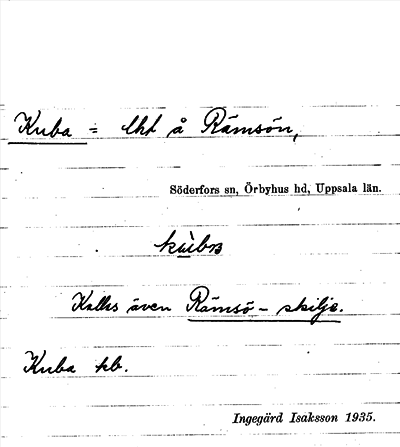 Kuba = lht å Rämsön,
Söderfors sn, Örbyhus hd, Uppsala län.
Kallas även Rämsö-skilje.
Kuba kb.
Ingegärd Isaksson 1935.